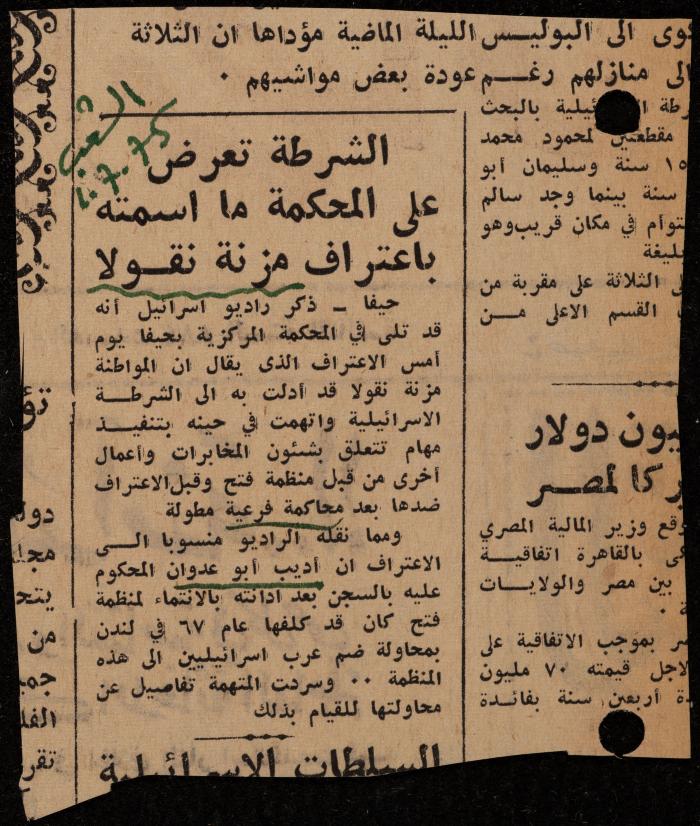 دوى الى البوليس الليلة الماضية مؤداها ان الثلاثة
الى منازلهم رغم عودة بعض مواشيهم .
الشعب
١٠.٧.٧٥
الشرطة تعرض
على المحكمة ما اسمته
باعتراف مزنة نقولا
حيفا ــ ذكر راديو اسرائيل أنه
قد تلى في المحكمة المركزية بحيفا يوم
أمس الاعتراف الذى يقال ان المواطنة
مزنة نقولا قد أدلت به الى الشرطة
الاسرائيلية واتهمت في حينه بتنفيذ
مهام تتعلق بشئون المخابرات وأعمال
أخرى من قبل منظمة فتح وقبل الاعتراف
ضدها بعد محاكمة فرعية مطولة
ومما نقله الراديو منسوبا الى
الاعتراف ان أديب أبو عدوان المحكوم
عليه بالسجن بعد ادانته بالانتماء لمنظمة
فتح كان قد كلفها عام ٦٧ في لندن
بمحاولة ضم عرب اسرائيليين الى هذه
المنظمة .. وسردت المتهمة تفاصيل عن
محاولتها للقيام بذلك
السلطات الاسرائيلية
بالبحث
مقطعتين لمحمود محمد
١٥ سنة وسليمان أبو
سنة بينما وجد سالم
توأم في مكان قريب وهو
الثلاثة على مقربة من
القسم الاعلى من
يون دولار
ركا لمصر
وقع وزير المالية المصري
كى بالقاهرة اتفاقية
بين مصر والولايات
ة .
بموجب الاتفاقية على
لاجل قيمته ٧٠ مليون
دة أربعين سنة بفائدة
دول
مجل
يتحد
من
جمي
الفل
تقر